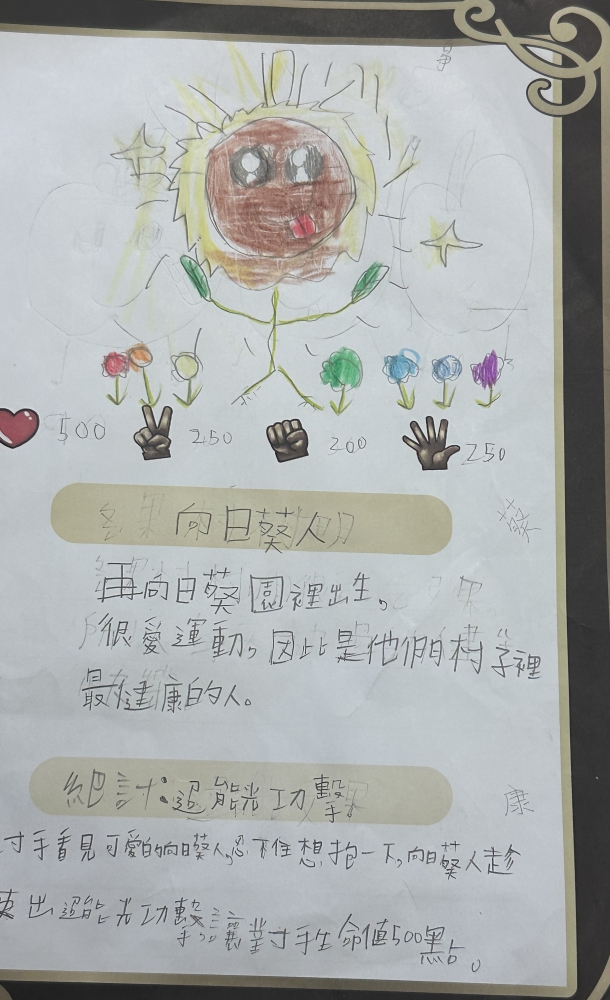 500 250 200 250
向日葵人
葵
再向日葵園裡出生，
很愛運動，因此是他們村子裡
最健康的人。
絕計：超能光功擊
康
手看見可愛的向日葵人，忍不住想抱一下，向日葵人趁
出超能光功擊，讓對手生命值500點。